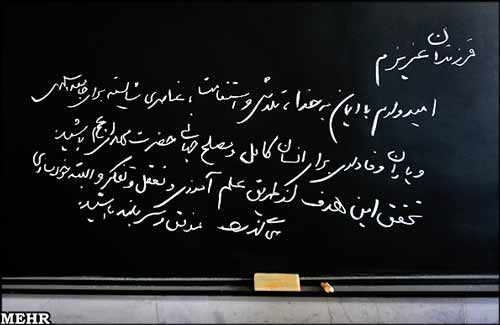 فرزندان عزیزم
امیدوارم با ایمان به خدا، تلاش و استقامت، عناصری شایسته برای جامعه اسلامی
و یاران وفاداری برای انسان کامل و مصلح جهانی حضرت مهدی (عج) باشید.
تحقق این هدف از طریق علم آموزی و تعقل و تفکر و البته خودسازی
می گذرد. موفق و سربلند باشید.
MEHR